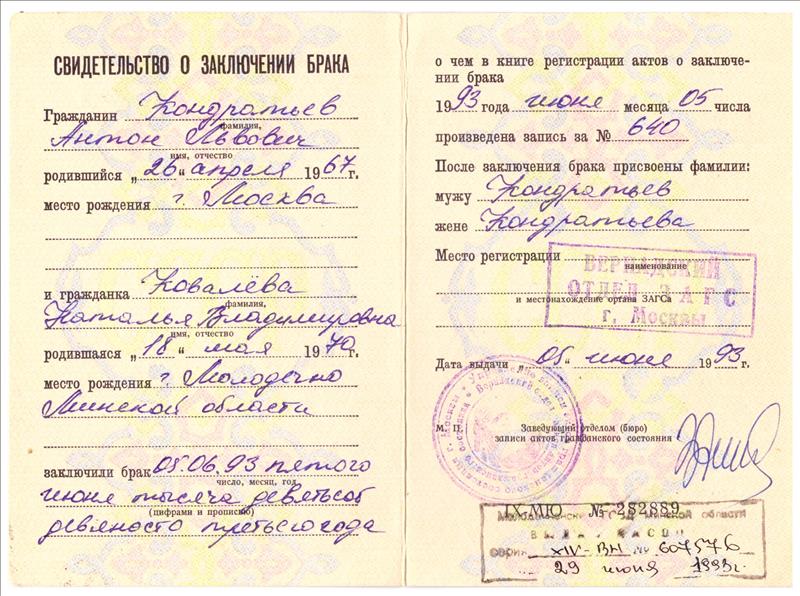 СВИДЕТЕЛЬСТВО О ЗАКЛЮЧЕНИИ БРАКА
Гражданин Кондратьев
фамилия,
Антон Львович
имя, отчество
родившийся „26“ апреля 1967 г.
место рождения г. Москва
и гражданка Ковалёва
фамилия,
Наталья Владимировна
имя, отчество
родившаяся „18“ мая 1970 г.
место рождения г. Молодечно
Минской области
заключили брак 05.06.93 пятого
число, месяц, год
июня тысяча девятьсот
(цифрами и прописью)
девяносто третьего года
о чем в книге регистрации актов о заключе-
нии брака
1993 года июне месяца 05 числа
произведена запись за № 640
После заключения брака присвоены фамилии:
мужу Кондратьев
жене Кондратьева
Место регистрации
наименование
ВЕРНАДСКИЙ
ОТДЕЛ ЗАГС
и местонахождение органа ЗАГСа
г. Москвы
Дата выдачи „05“ июня 1993 г.
М. П. Заведующий отделом (бюро)
записи актов гражданского состояния
IX-МЮ № 282889
Минской области
ВЫДАН ПАСПОРТ
серии XIV-ВН № 607576
29 июня 1993 г.